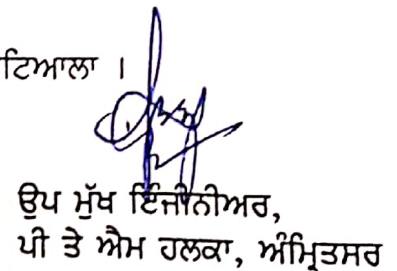 ਟਿਆਲਾ ।
ਉਪ ਮੁੱਖ ਇੰਜੀਨੀਅਰ,
ਪੀ ਤੇ ਐਮ ਹਲਕਾ, ਅੰਮ੍ਰਿਤਸਰ